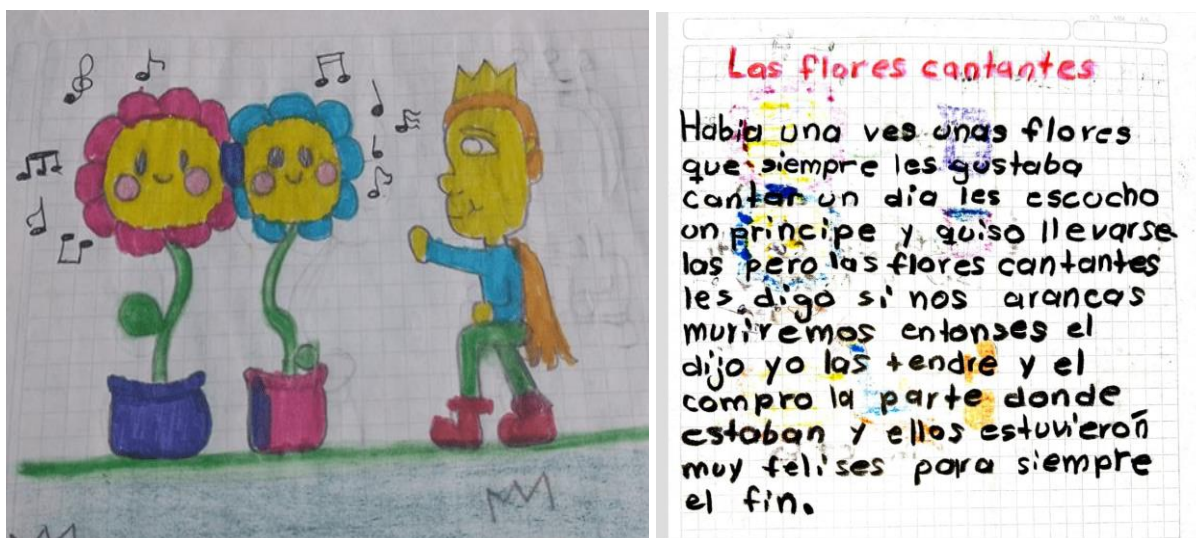 Las flores cantantes
Habia una ves unas flores
que siempre les gustaba
cantar un dia les escucho
un principe y quiso llevarse
las pero las flores cantantes
les digo si nos arancas
muriremos entonses el
dijo yo las tendre y el
compro la parte donde
estaban y ellos estuvierón
muy felises para siempre
el fin.